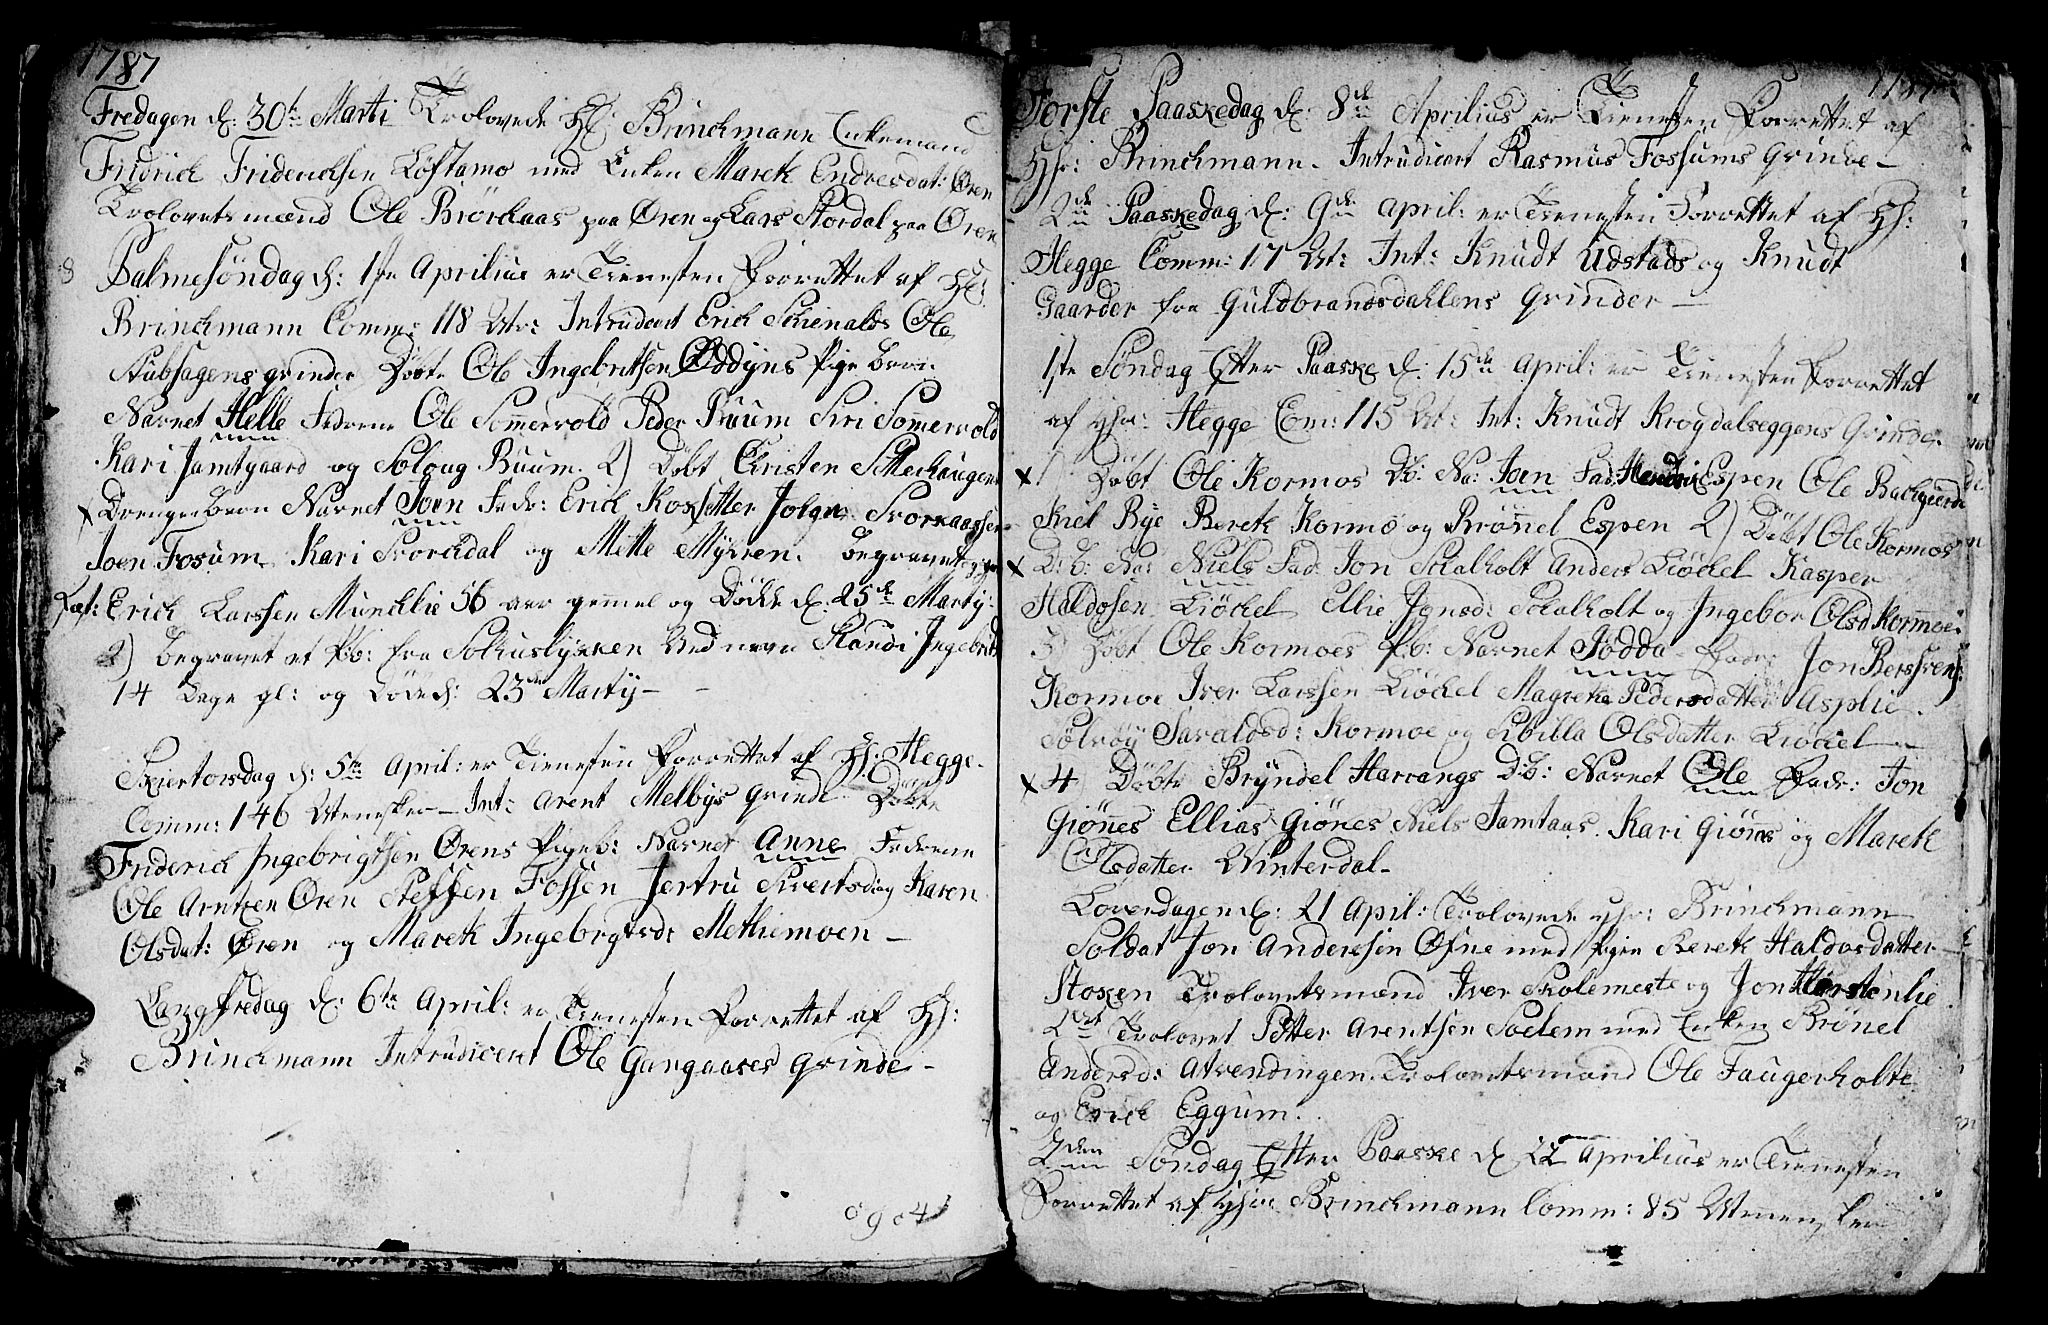 1787
Fredagen d: 30te Marti Trolovede Hr: Brinchmann Enkemand
Fridrich Friderichsen Løstamo med Enken Marett Endresdat: Øren
Trolovets mænd Ole Brørchaas paa Øren og Lars Stordal paa Øren
Palmesöndag d: 1ste Aprilius er Tienesten Forrettet af Hr:
Brinchmann Comm: 118 Intruducert Erich Ole
Stubsagens grinder Döbt Ole Ingebritsen Oddyns Pige barn
Navnet Helle Fadrene Ole Somervold Peder Buum Siri Somervold
Kari Jamtgaard og Soloug Buum. 2) Döbt Christen
Drenge barn Navnet Joen Fadr: Erich
Joen Fosum Kari Svorchdal og Mette Myrren. begravet
Erich Larssen Muncklie 56 aar gammel og Døde d: 25de Marty
2) begravet et Pb: fra ved navn Randi Ingebrits
14 Dage gl: og Döde d: 23de Marty –
Skiertorsdag d: 5te April: er Tienesten Forrettet af Hr: Hegge –
Comm: 146 Menesker – Int: Arent Melbys grinde Döbte
Friderich Ingebrigtsen Ørens Pigeb: Navnet Anne Fadrene
Ole Arntzen Øren Steffen Fossen Jertru Sivertsd og Karen
Olsdat: Øren og Marett Ingebrgtsd: Methiemoen –
Langfredag d: 6te April: er Tienesten Forrettet af Hr:
Brinchmann Intrudicert Ole Gangaases grinde –
1787
Forste Paaskedag d: 8de Aprilius er Tienesten Forrettet af
Hr: Brinchmann – Intrudicert Rasmus Fossums grinde –
2den Paaskedag d: 9de April: er Tienesten Forrettet af Hr:
Hegge Comm: 17 Int: Knudt Udstads og Knudt
Gaarder fra Guldbrandsdahlens grinder –
1ste Söndag Efter Paaske d: 15de April: er Tienesten Forrettet
af Hr: Hegge Com: 115 Int: Knudt Krogdalseggens Grinde
1) Döbt Ole Kormos Db: Na: Joen Fad: Espen Ole
Kiel Rye Berett Kormo og Brönel Espen 2) Döbt Ole Kormos
D: b: Na: Niels Fad: Jon Schalholt Anders Liöchel Kasper
Haldosen Liöchel Ellie Jonsd: Schalholt og Ingebor Olsd Kormoe
3) Döbt Ole Kormoes Pb: Navnet Jödda Fadr: Jon
Kormoe Iver Larssen Liöchel Magreta Pedersdatter Asplie
Sölvöy Haraldsd: Kormoe og Sibilla Olsdatter Liöchel –
4) Döbte Bryndel Harrangs Db: Navnet Ole Fadr: Jon
Giönnes Ellias Giönes Niels Jamtaas Kari Giönnes og Marett
Olsdatter Vinterdal –
Löverdagen d: 21 April: Trolovede Hr: Brinchmann
Soldat Jon Andersen Øfne med Pigen Berett Haldosdatter
Stoxen Trolovetsmænd Iver Skolemeste og Jon
2det Trolovet Petter Arentsen Soelem med Enken Brönel
Andersd: Afvendingen Trolovetsmænd Ole Faugerholte
og Erich Eggum.
2den Söndag Efter Paaske d: 22 Aprilius er Tienesten
Forrettet af Hr: Brinchmann Comm: 85